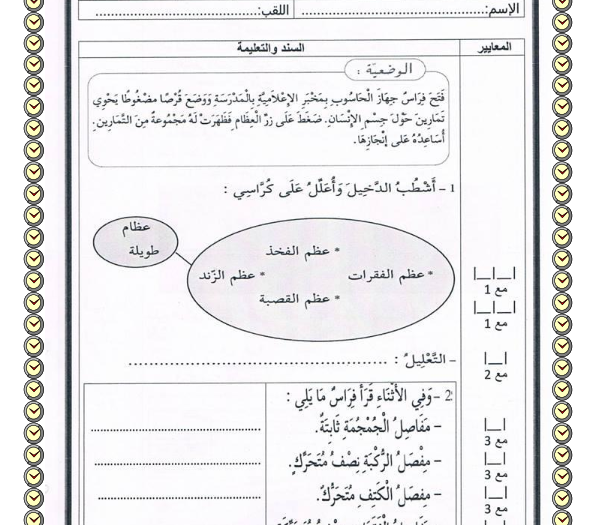 الإسم:........................................ اللقب:........................................
المعايير
السند والتعليمة
الوضعيّة :
فَتَحَ فِرَاسٌ جِهَازَ الْحَاسُوبِ بِمَخْبَرِ الإِعْلَامِيَّةِ بِالْمَدْرَسَةِ وَوَضَعَ قُرْصًا مَضْغُوطًا يَحْوِي
تَمَارِينَ حَوْلَ جِسْمِ الإِنْسَانِ. ضَغَطَ عَلَى زِرِّ الْعِظَامِ فَظَهَرَتْ لَهُ مَجْمُوعَةٌ مِنَ التَّمَارِينِ.
أُسَاعِدُهُ عَلَى إِنْجَازِهَا.
1 – أَشْطُبُ الدَّخِيلَ وَأُعَلِّلُ عَلَى كُرَّاسِي :
عظام
طويلة
* عظم الفخذ
* عظم الفقرات
* عظم الزّند
* عظم القصبة
مع 1
مع 1
– التَّعْلِيلُ : ................................................
مع 2
2 –وَفِي الأَثْنَاءِ قَرَأَ فِرَاسٌ مَا يَلِي :
– مَفَاصِلُ الْجُمْجُمَةِ ثَابِتَةٌ. ........................................
مع 3
– مِفْصَلُ الرُّكْبَةِ نِصْفُ مُتَحَرِّكٍ. ........................................
مع 3
– مِفصَلُ الْكَتِفِ مُتَحَرِّكٌ. ........................................
مع 3